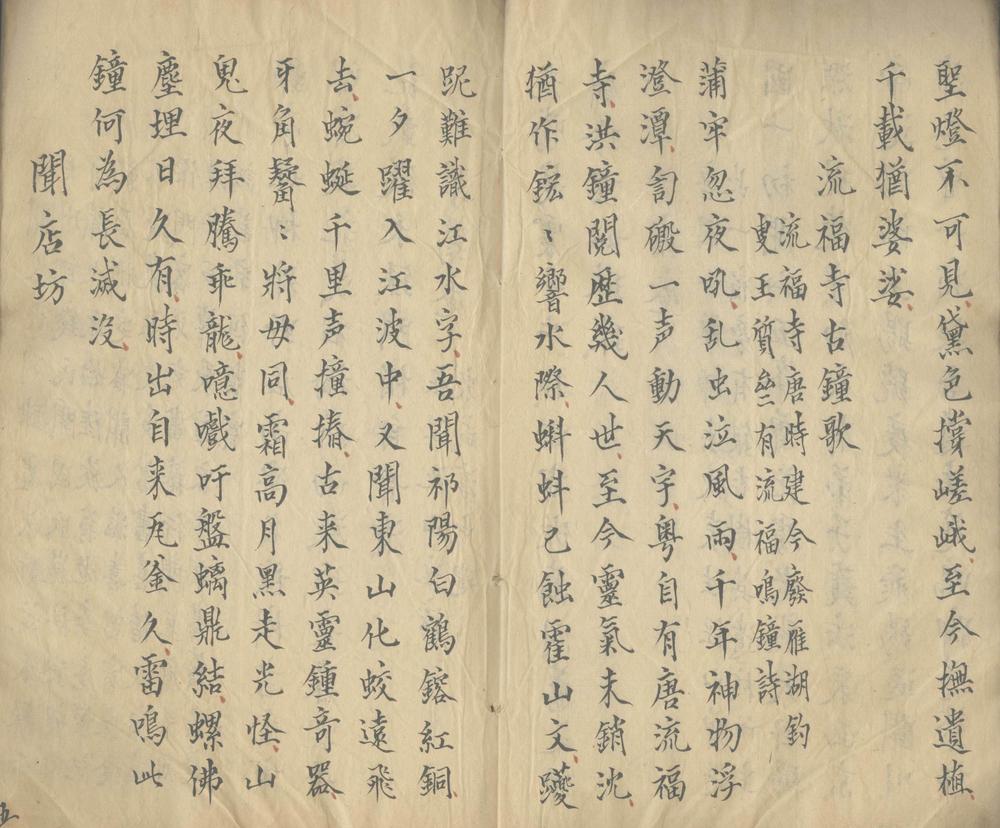 聖燈不可見黛色撐嵯峨至今撫遺植
千載猶婆娑
流福寺古鐘歌
流福寺唐時建今廢雁湖釣
叟王質㘴有流福鳴鐘詩
蒲牢忽夜吼乱虫泣風雨千年神物浮
澄潭訇磤一声動天宇粤自有唐流福
寺洪鐘閱歷幾人世至今靈氣未銷沈
猶作鋐〻響水際蝌蚪已蝕霍山文
跜難識江水字吾聞祁陽白鶴鎔紅銅
一夕躍入江波中又聞東山化蛟遠飛
去蜿蜒千里声撞摏古来英靈鍾奇器
牙角鬐〻將毋同霜高月黑走光怪山
鬼夜拜騰乖龍噫嚱吁盤螭鼎結螺佛
塵埋日久有時出自来瓦釜久雷鳴此
鐘何為長滅沒
聞店坊
五